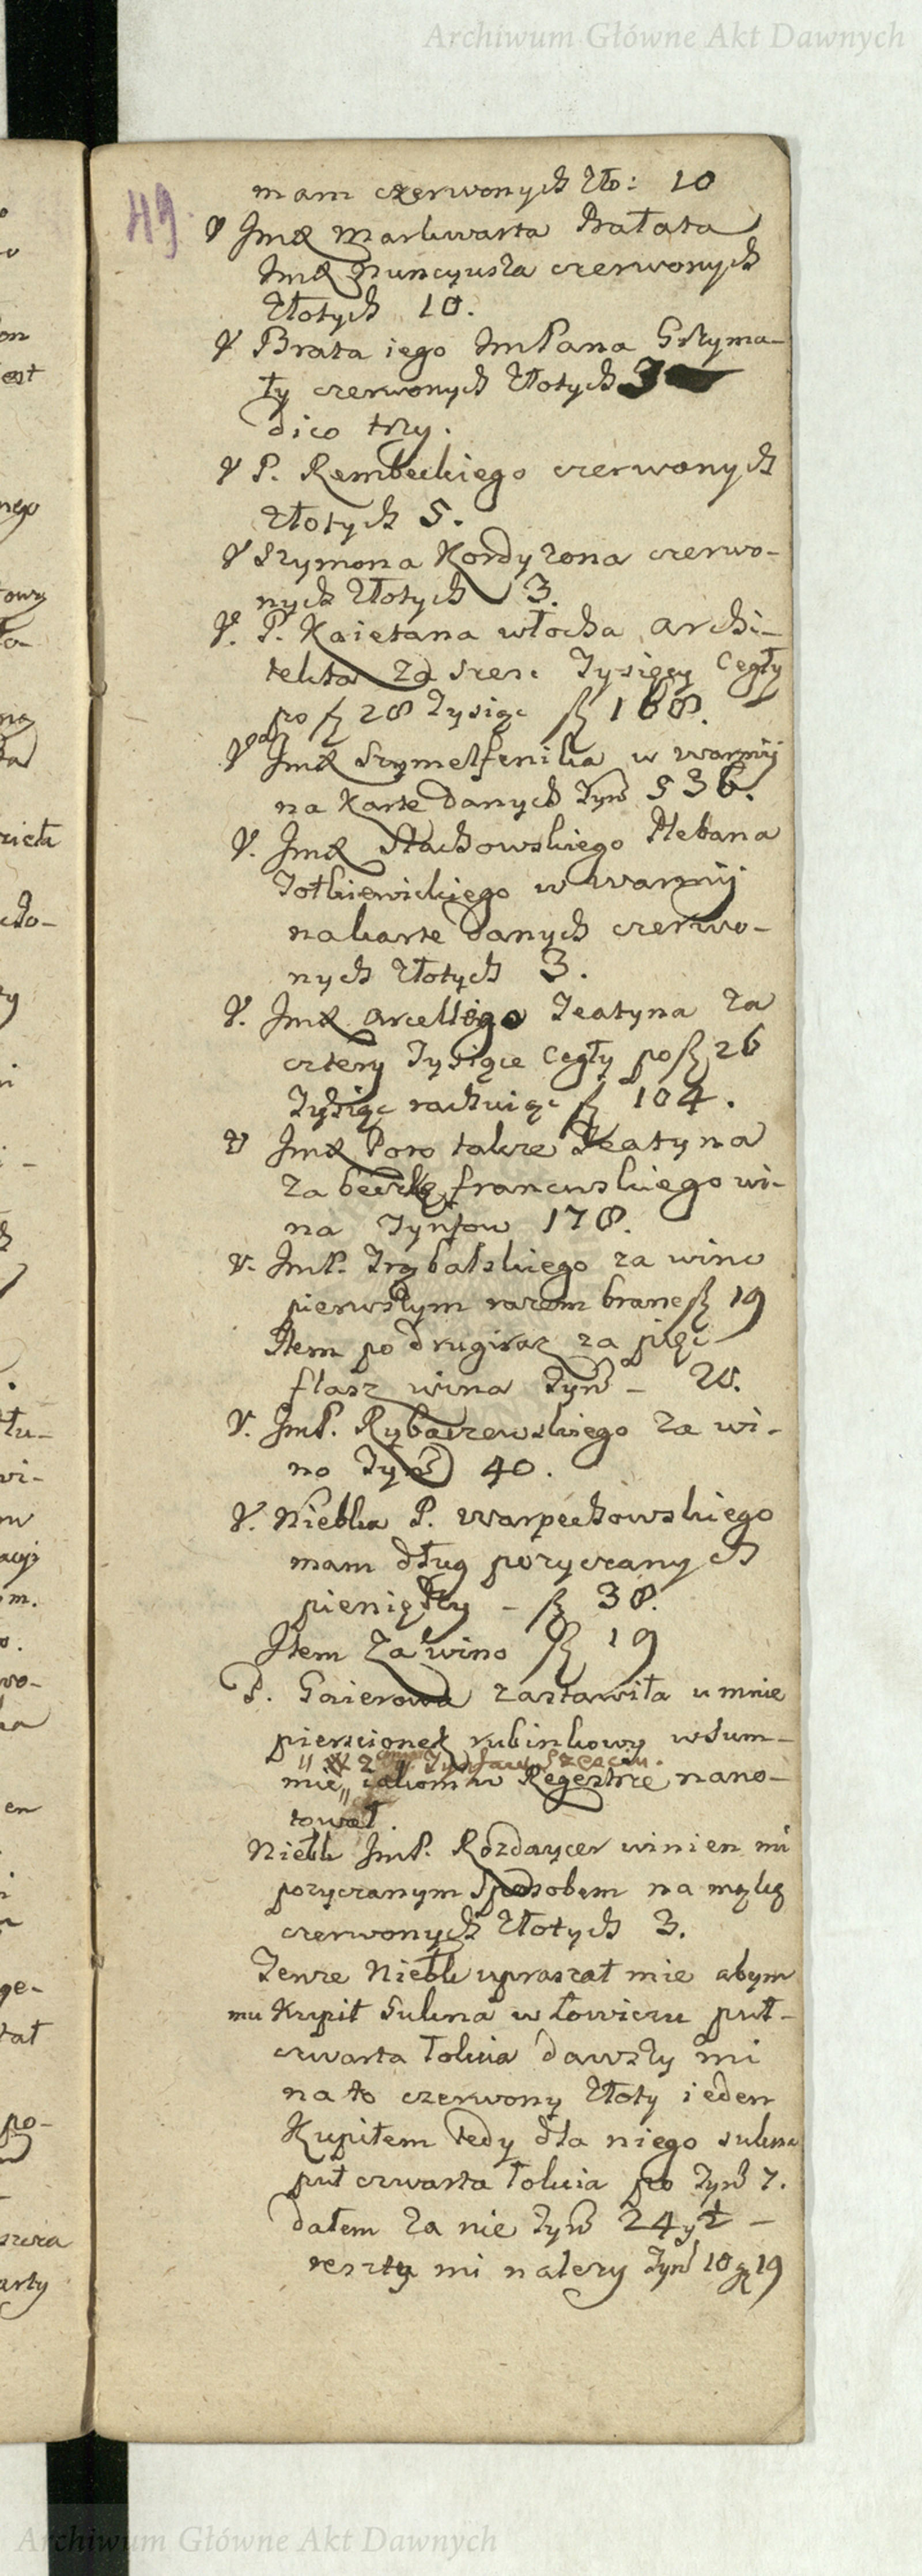 Archiwum Główne Akt Dawnych
49.
mam czerwonych zło: 10
V JmX Markwarta Prałata
JmX Nuncyusza czerwonych
złotych 10.
V Brata iego JmPana Grzyma-
ły czerwonych złotych 3
dico trzy.
V P. Rembeckiego czerwonych
złotych 5.
V Szymona Kordyzona czerwo-
nych złotych 3.
V. P. Kaietana włocha archi-
tekta za szesc Tysięcy Cegły
po fl 28 Tysiąc fl 168.
V JmX Szymelfenika w warmij
na Karte danych tynf 536.
V. JmX Stachowskiego Plebana
Tolkiewickiego w warmij
na karte danych czerwo-
nych złotych 3.
V. JmX Arcellego Teatyna za
cztery Tysiące Cegły po fl 26
Tysiąc rachuiąc fl 104.
V JmX Poro takze Teatyna
za beczkę francuskiego wi-
na Tynfow 178.
V. JmP. Trybalskiego za wino
pierwszym razem brane fl 19
Item po drugi raz za pięc
flasz wina tynf – 20.
V. JmP. Rybaczewskiego za wi-
no tynf 40.
V. Niebka P. Warpechowskiego
mam dług pozyczanych
pieniędzy – fl 38.
Item za wino fl 19
P. Gnierowa zastawiła u mnie
pierscionek rubinkowy w sum-
mie, iakom w Regestrze nano-
tował.
Niebk JmP. Rozdaycer winien mi
pozyczanym sposobem na mękę
czerwonych złotych 3.
Tenze Niebk upraszał mie abym
mu Kupił sukna w Łowiczu puł-
czwarta łokcia dawszy mi
na to czerwony złoty ieden
Kupiłem tedy dla niego sukna
puł czwarta łokcia po tynf 7.
dałem za nie tynf 24 y ½ –
reszty mi nalezy tynf 10 gr 19
Archiwum Główne Akt Dawnych